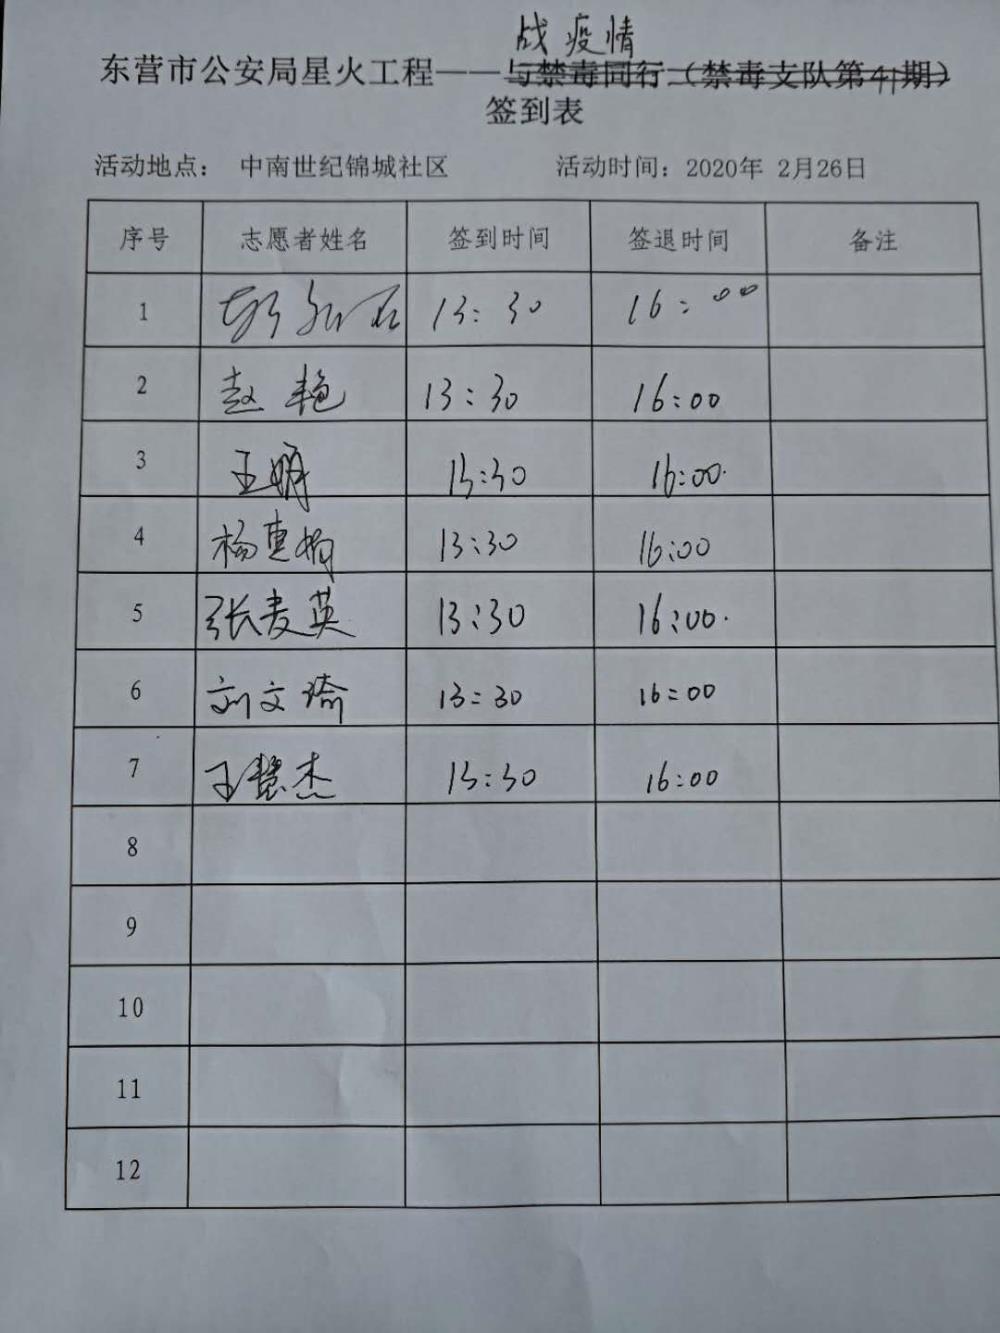 战疫情
东营市公安局星火工程——与禁毒同行（禁毒支队第41期）
签到表
活动地点： 中南世纪锦城社区 活动时间：2020年 2月26日
序号 志愿者姓名 签到时间 签退时间 备注
1 13:30 16:00
2 赵艳 13:30 16:00
3 王娟 13:30 16:00
4 杨惠娟 13:30 16:00
5 张麦英 13:30 16:00
6 刘文琦 13:30 16:00
7 王慧杰 13:30 16:00
8
9
10
11
12